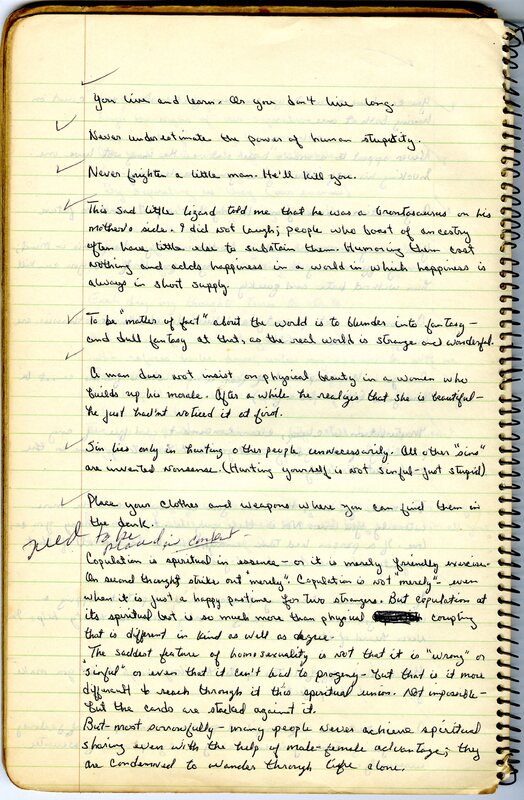 You live and learn. Or you don't live long.
Never underestimate the power of human stupidity.
Never frighten a little man. He'll kill you.
This sad little lizard told me that he was a brontosaurus on his
mother's side. I did not laugh; people who boast of ancestry
often have little else to sustain them. Humoring them cost
nothing and adds happiness in a world in which happiness is
always in short supply.
To be "matter of fact" about the world is to blunder into fantasy—
and dull fantasy at that, as the real world is strange and wonderful.
A man does not insist on physical beauty in a woman who
builds up his morale. After a while he realizes that she is beautiful—
he just hadn't noticed it at first.
Sin lies only in hurting other people unnecessarily. All other "sins"
are invented nonsense. (Hurting yourself is not sinful—just stupid)
Place your clothes and weapons where you can find them in
the dark.
need to be
placed in context—
Copulation is spiritual in essence—or it is merely friendly exercise.
On second thought, strike out "merely". Copulation is not "merely"—even
when it is just a happy pastime for two strangers. But copulation at
its spiritual best is so much more than physical coupling
that is different in kind as well as degree.
The saddest feature of homosexuality is not that it is "wrong" or
"sinful" or even that it can't lead to progeny—but that it is more
difficult to reach through it this spiritual union. Not impossible—
but the cards are stacked against it.
But—most sorrowfully—many people never achieve spiritual
sharing even with the help of male-female advantage; they
are condemned to wander through life alone.